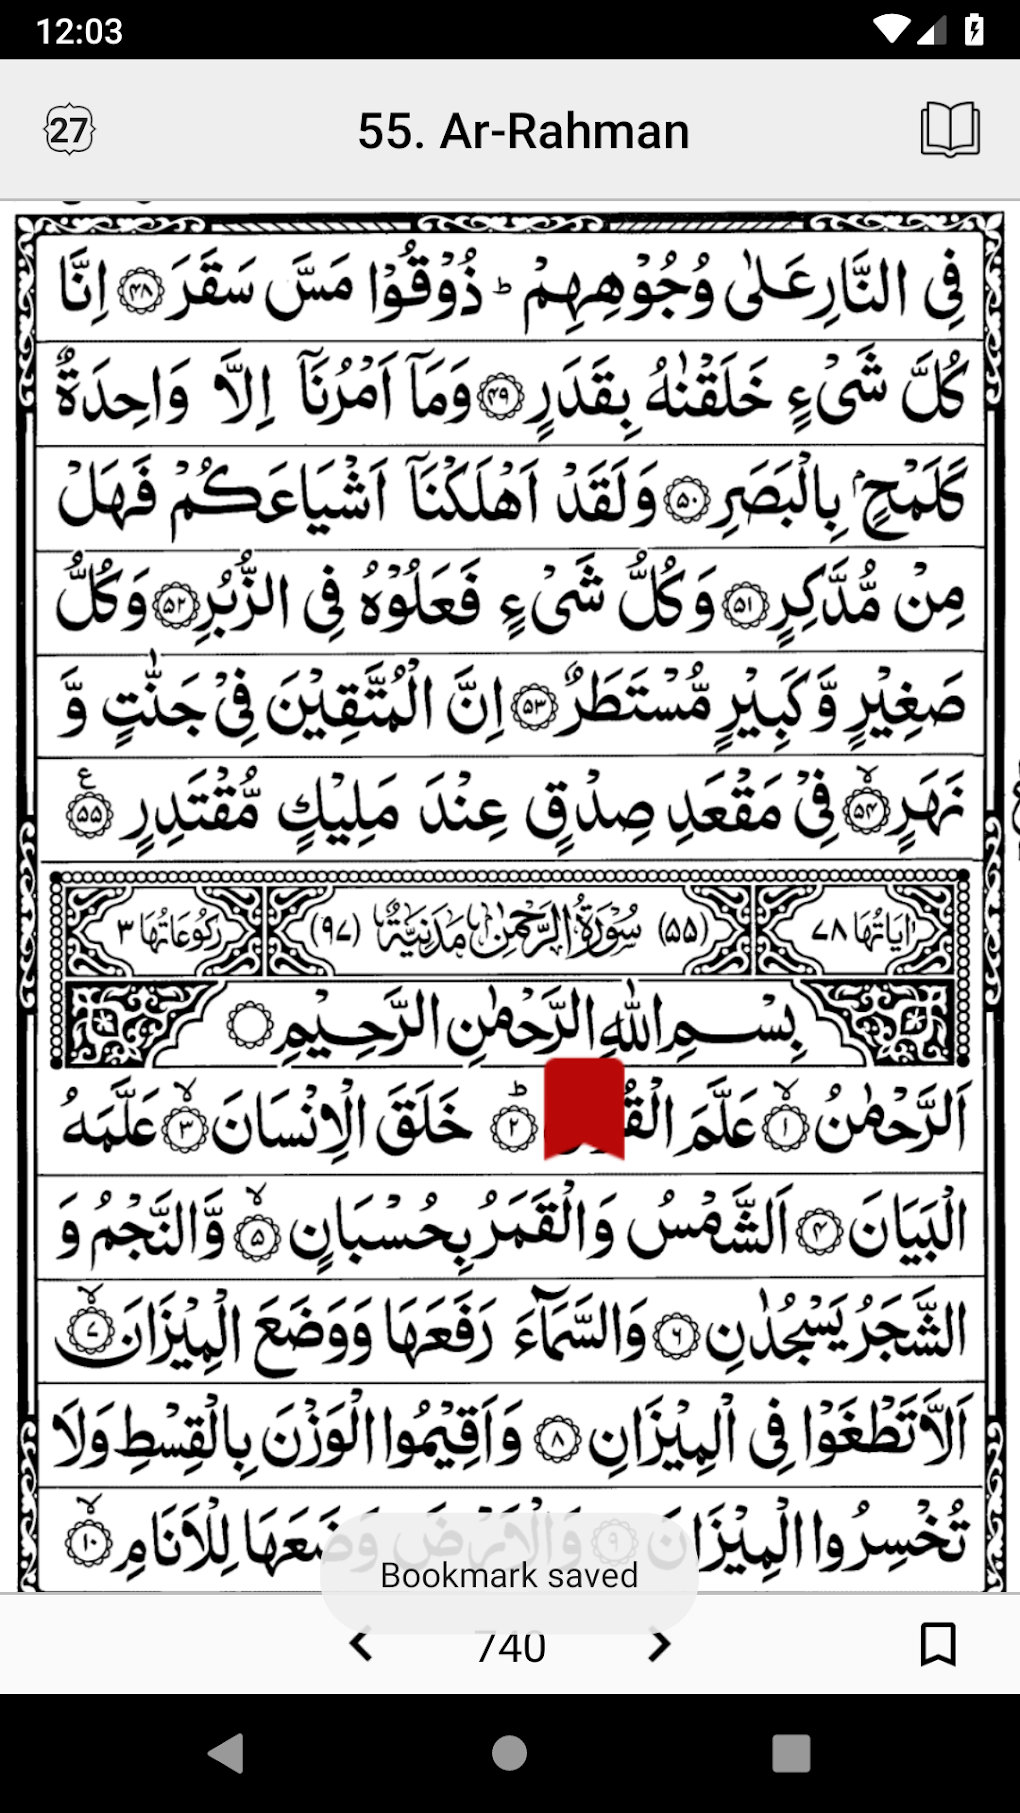 12:03
27
55. Ar-Rahman
فِي النَّارِ عَلٰى وُجُوْهِهِمْ ؕ ذُوْقُوْا مَسَّ سَقَرَ ﴿۴۸﴾ اِنَّا
كُلَّ شَيْءٍ خَلَقْنٰهُ بِقَدَرٍ ﴿۴۹﴾ وَمَآ اَمْرُنَآ اِلَّا وَاحِدَةٌ
كَلَمْحٍۢ بِالْبَصَرِ ﴿۵۰﴾ وَلَقَدْ اَهْلَكْنَآ اَشْيَاعَكُمْ فَهَلْ
مِنْ مُّدَّكِرٍ ﴿۵۱﴾ وَكُلُّ شَيْءٍ فَعَلُوْهُ فِي الزُّبُرِ ﴿۵۲﴾ وَكُلُّ
صَغِيْرٍ وَّكَبِيْرٍ مُّسْتَطَرٌ ﴿۵۳﴾ اِنَّ الْمُتَّقِيْنَ فِيْ جَنّٰتٍ وَّ
نَهَرٍ ﴿۵۴﴾ۙ فِيْ مَقْعَدِ صِدْقٍ عِنْدَ مَلِيْكٍ مُّقْتَدِرٍ ﴿۵۵﴾ ع
اٰيَاتُهَا ۷۸ (۵۵) سُوْرَةُ الرَّحْمٰنِ مَدَنِيَّةٌ (۹۷) رُكُوْعَاتُهَا ۳
بِسْمِ اللّٰهِ الرَّحْمٰنِ الرَّحِيْمِ
اَلرَّحْمٰنُ ﴿۱﴾ۙ عَلَّمَ ﴿۲﴾ؕ خَلَقَ الْاِنْسَانَ ﴿۳﴾ۙ عَلَّمَهُ
الْبَيَانَ ﴿۴﴾ اَلشَّمْسُ وَالْقَمَرُ بِحُسْبَانٍ ﴿۵﴾ۙ وَّالنَّجْمُ وَ
الشَّجَرُ يَسْجُدٰنِ ﴿۶﴾ وَالسَّمَآءَ رَفَعَهَا وَوَضَعَ الْمِيْزَانَ ﴿۷﴾ۙ
اَلَّا تَطْغَوْا فِي الْمِيْزَانِ ﴿۸﴾ وَاَقِيْمُوا الْوَزْنَ بِالْقِسْطِ وَلَا
تُخْسِرُوا الْمِيْزَانَ ﴿۹﴾ وَالْاَرْضَ وَضَعَهَا لِلْاَنَامِ ﴿۱۰﴾ۙ
Bookmark saved
740